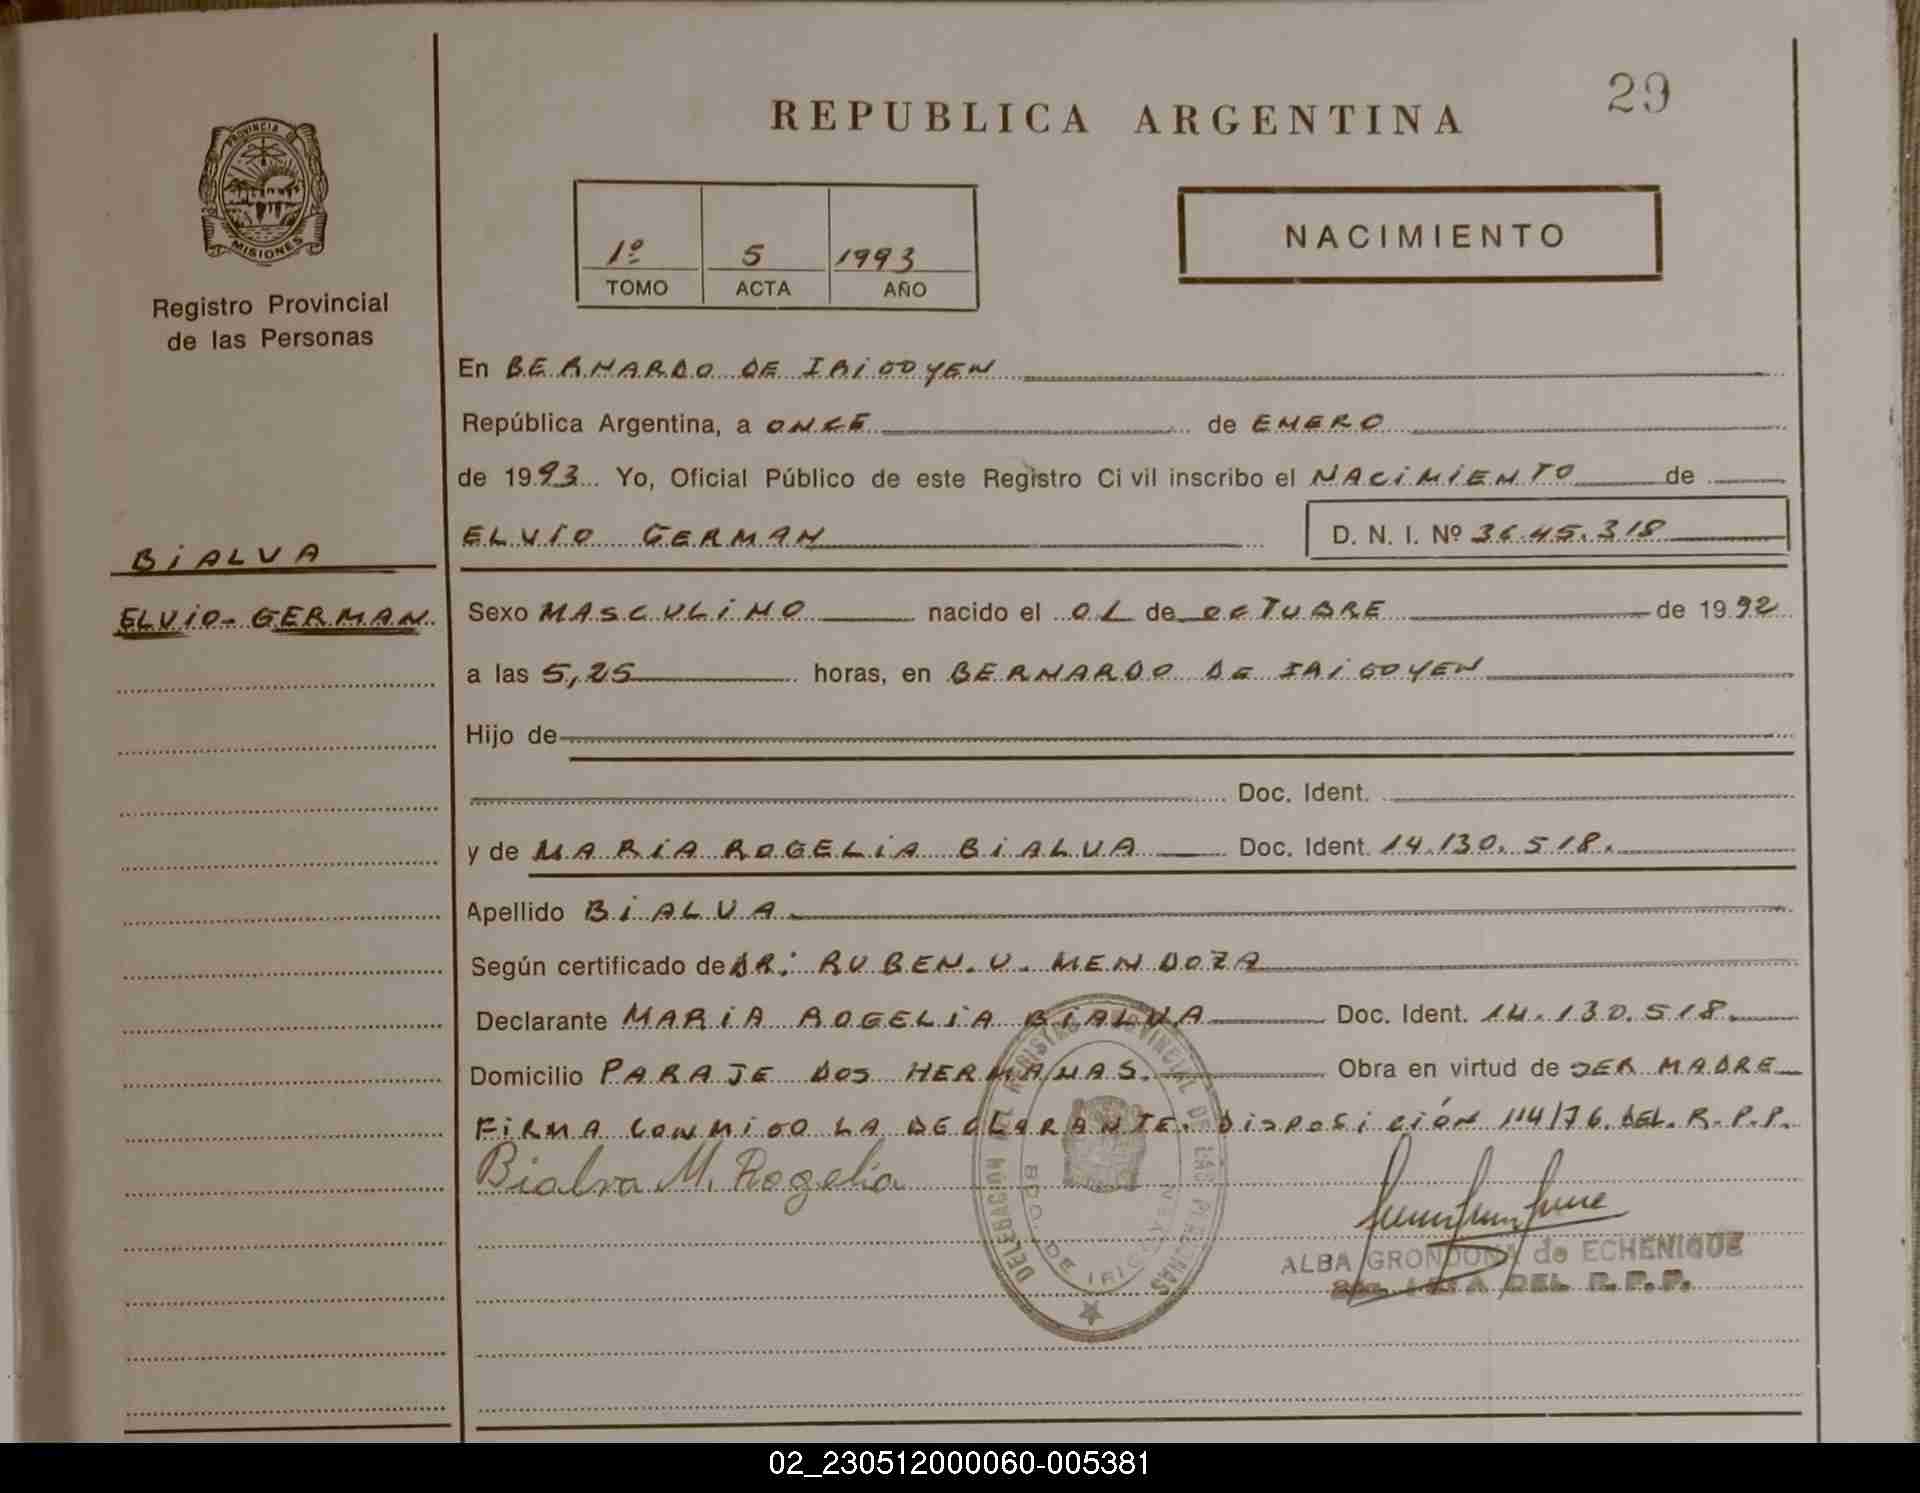 29
REPUBLICA ARGENTINA
PROVINCIA DE
MISIONES
Registro Provincial
de las Personas
1º 5 1993
TOMO ACTA AÑO
NACIMIENTO
En BERNARDO DE IRIGOYEN
República Argentina, a ONCE de ENERO
de 1993 Yo, Oficial Público de este Registro Ci vil inscribo el NACIMIENTO de
ELVIO GERMAN D. N. I. Nº 36.45.318
BIALVA
ELVIO-GERMAN.
Sexo MASCULINO nacido el 01 de OCTUBRE de 1992
a las 5,25 horas, en BERNARDO DE IRIGOYEN
Hijo de
Doc. Ident.
y de MARIA ROGELIA BIALVA Doc. Ident. 14.130.518.
Apellido BIALVA
Según certificado de DR: RUBEN.U. MENDOZA
Declarante MARIA ROGELIA BIALVA Doc. Ident. 14.130.518.
Domicilio PARAJE DOS HERMANAS. Obra en virtud de SER MADRE
FIRMA CONMIGO LA DECLARANTE. DISPOSICIÓN 114/76. DEL. R.P.P.
Bialva M. Rogelia
DELEGACION REGISTRO PROVINCIAL DE LAS PERSONAS
BDO. DE IRIGOYEN
ALBA GRONDONA de ECHENIQUE
DEL R.P.P.
02_230512000060-005381